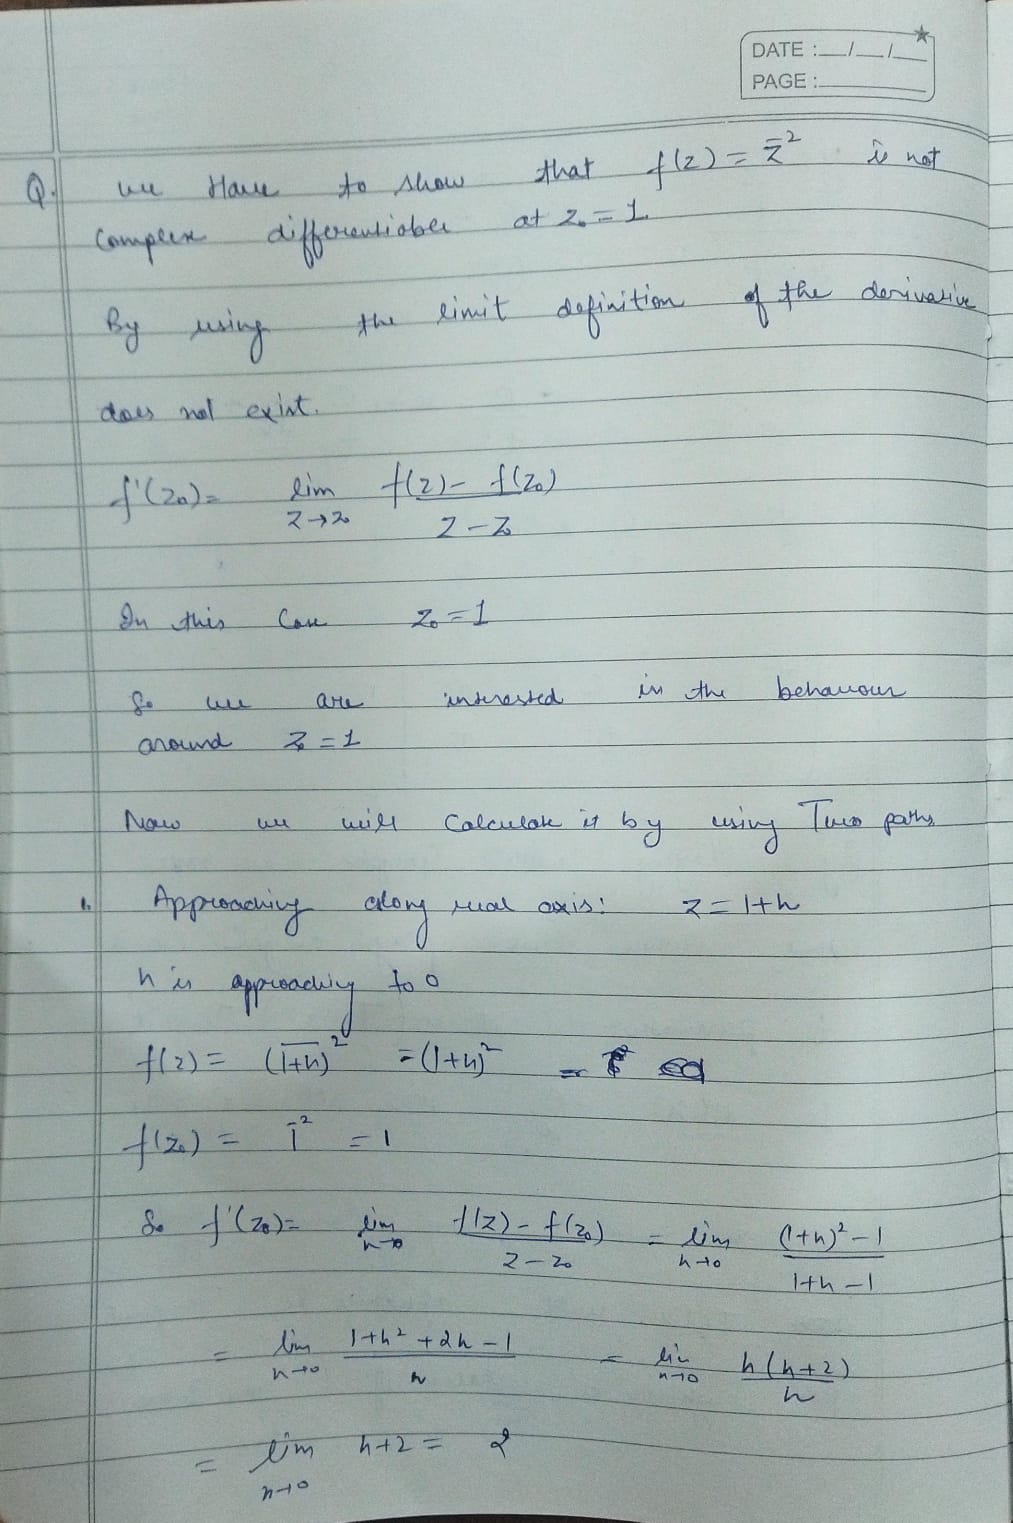 DATE :__/__/__
PAGE :
Q. we Have to show that f(z) = z̄² is not
Complex differentiable at z₀ = 1
By using the limit definition of the derivative
does not exist.
f'(z₀) = lim f(z) - f(z₀)
z→z₀ z - z₀
In this Case z₀ = 1
So we are interested in the behaviour
around z₀ = 1
Now we will Calculate it by using Two paths
1. Approaching along real axis: z = 1+h
h is approaching to 0
f(z) = (\overline{1+h})² = (1+h)² =
f(z₀) = 1̄² = 1
So f'(z₀) = lim f(z) - f(z₀) = lim (1+h)² - 1
h→0 z - z₀ h→0 1+h-1
= lim 1+h²+2h-1 = lim h(h+2)
h→0 h h→0 h
= lim h+2 = 2
h→0